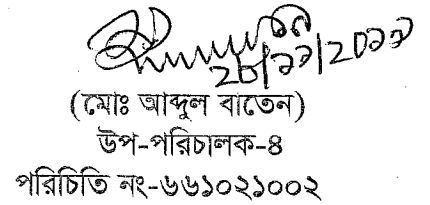 ২০/১১/২০১১
(মোঃ আব্দুল বাতেন)
উপ-পরিচালক-৪
পরিচিতি নং-৬৬১০২১০০২